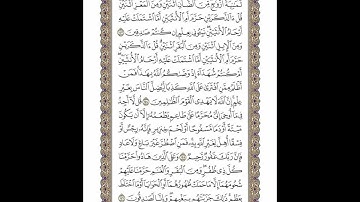 ثَمَٰنِيَةَ أَزْوَٰجٖۖ مِّنَ ٱلضَّأْنِ ٱثْنَيْنِ وَمِنَ ٱلْمَعْزِ ٱثْنَيْنِۗ
قُلْ ءَآلذَّكَرَيْنِ حَرَّمَ أَمِ ٱلْأُنثَيَيْنِ أَمَّا ٱشْتَمَلَتْ عَلَيْهِ
أَرْحَامُ ٱلْأُنثَيَيْنِۖ نَبِّـُٔونِي بِعِلْمٍ إِن كُنتُمْ صَٰدِقِينَ
وَمِنَ ٱلْإِبِلِ ٱثْنَيْنِ وَمِنَ ٱلْبَقَرِ ٱثْنَيْنِۗ قُلْ ءَآلذَّكَرَيْنِ
حَرَّمَ أَمِ ٱلْأُنثَيَيْنِ أَمَّا ٱشْتَمَلَتْ عَلَيْهِ أَرْحَامُ ٱلْأُنثَيَيْنِۖ
أَمْ كُنتُمْ شُهَدَآءَ إِذْ وَصَّىٰكُمُ ٱللَّهُ بِهَٰذَاۚ فَمَنْ
أَظْلَمُ مِمَّنِ ٱفْتَرَىٰ عَلَى ٱللَّهِ كَذِبٗا لِّيُضِلَّ ٱلنَّاسَ بِغَيْرِ
عِلْمٍۚ إِنَّ ٱللَّهَ لَا يَهْدِي ٱلْقَوْمَ ٱلظَّٰلِمِينَ قُل لَّآ أَجِدُ
فِي مَآ أُوحِيَ إِلَيَّ مُحَرَّمًا عَلَىٰ طَاعِمٖ يَطْعَمُهُۥٓ إِلَّآ أَن يَكُونَ
مَيْتَةً أَوْ دَمٗا مَّسْفُوحًا أَوْ لَحْمَ خِنزِيرٖ فَإِنَّهُۥ رِجْسٌ أَوْ
فِسْقًا أُهِلَّ لِغَيْرِ ٱللَّهِ بِهِۦۚ فَمَنِ ٱضْطُرَّ غَيْرَ بَاغٖ وَلَا عَادٖ
فَإِنَّ رَبَّكَ غَفُورٞ رَّحِيمٞ وَعَلَى ٱلَّذِينَ هَادُوا۟ حَرَّمْنَا
كُلَّ ذِي ظُفُرٖۖ وَمِنَ ٱلْبَقَرِ وَٱلْغَنَمِ حَرَّمْنَا عَلَيْهِمْ
شُحُومَهُمَآ إِلَّا مَا حَمَلَتْ ظُهُورُهُمَآ أَوِ ٱلْحَوَايَآ أَوْ مَا ٱخْتَلَطَ
بِعَظْمٖۚ ذَٰلِكَ جَزَيْنَٰهُم بِبَغْيِهِمْۖ وَإِنَّا لَصَٰدِقُونَ